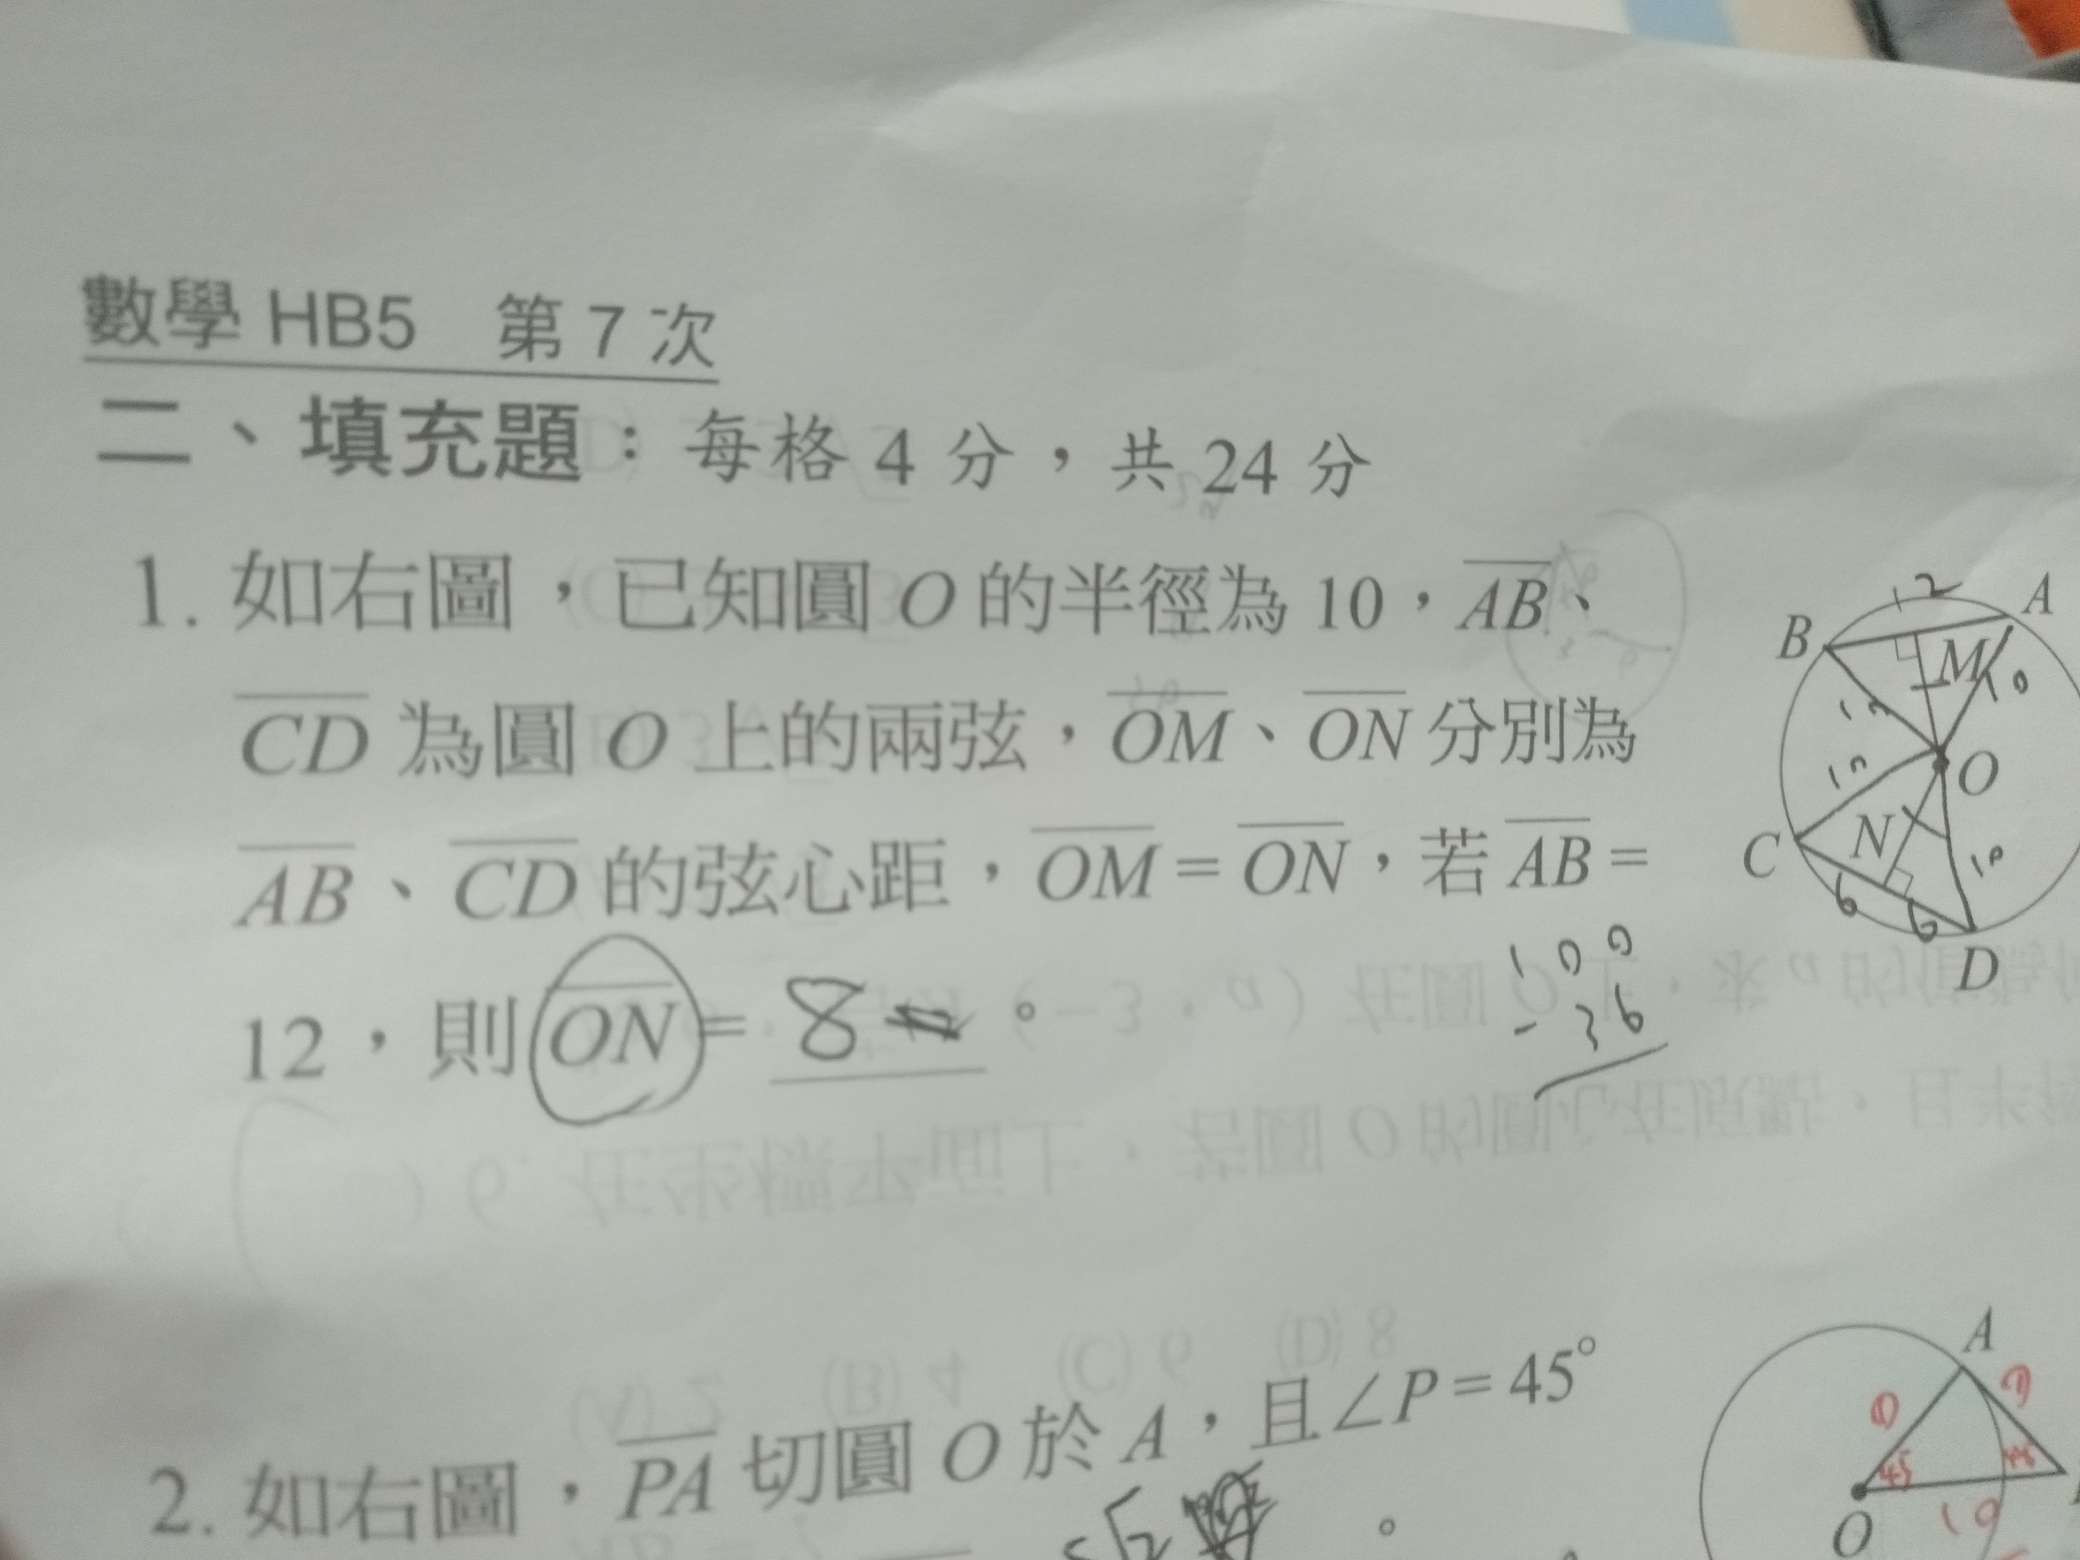 數學 HB5 第 7 次
二、填充題：每格 4 分，共 24 分
1. 如右圖，已知圓 O 的半徑為 10，AB、
CD 為圓 O 上的兩弦，OM、ON 分別為
AB、CD 的弦心距，OM = ON，若 AB =
12，則 ON = 8。
12
A
B
M
10
10
10
O
C
N
10
6
6
D
100
- 36
2. 如右圖，PA 切圓 O 於 A，且∠P = 45°
。
A
45
O
10